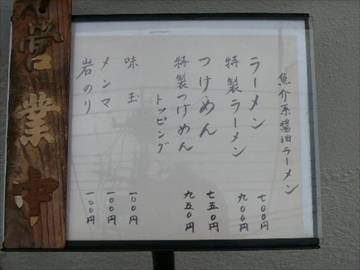 魚介系醤油ラーメン
ラーメン 七〇〇円
特製ラーメン 九〇〇円
つけめん 七五〇円
特製つけめん 九五〇円
トッピング
味玉 一〇〇円
メンマ 一〇〇円
岩のり 一〇〇円
営業中